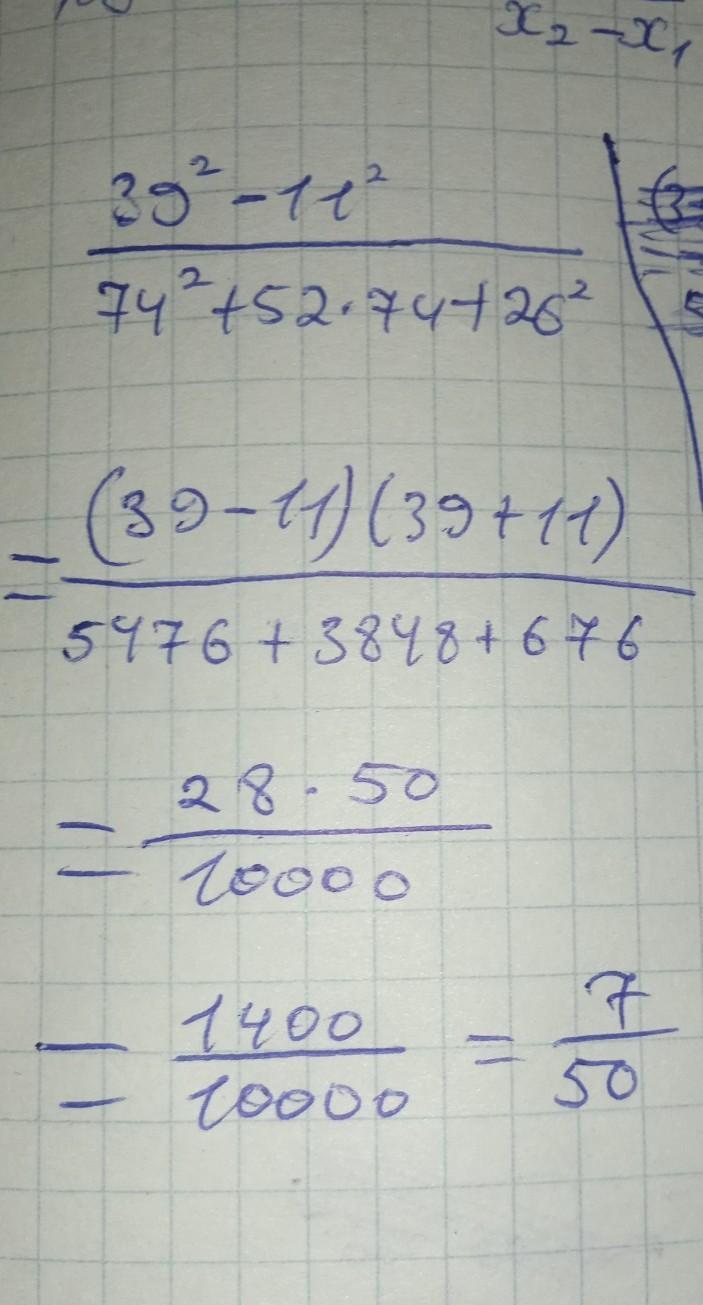 x₂ - x₁
39² - 11²
74² + 52 · 74 + 26²
= (39 - 11)(39 + 11)
5476 + 3848 + 676
= 28 · 50
10000
= 1400 = 7
10000 50